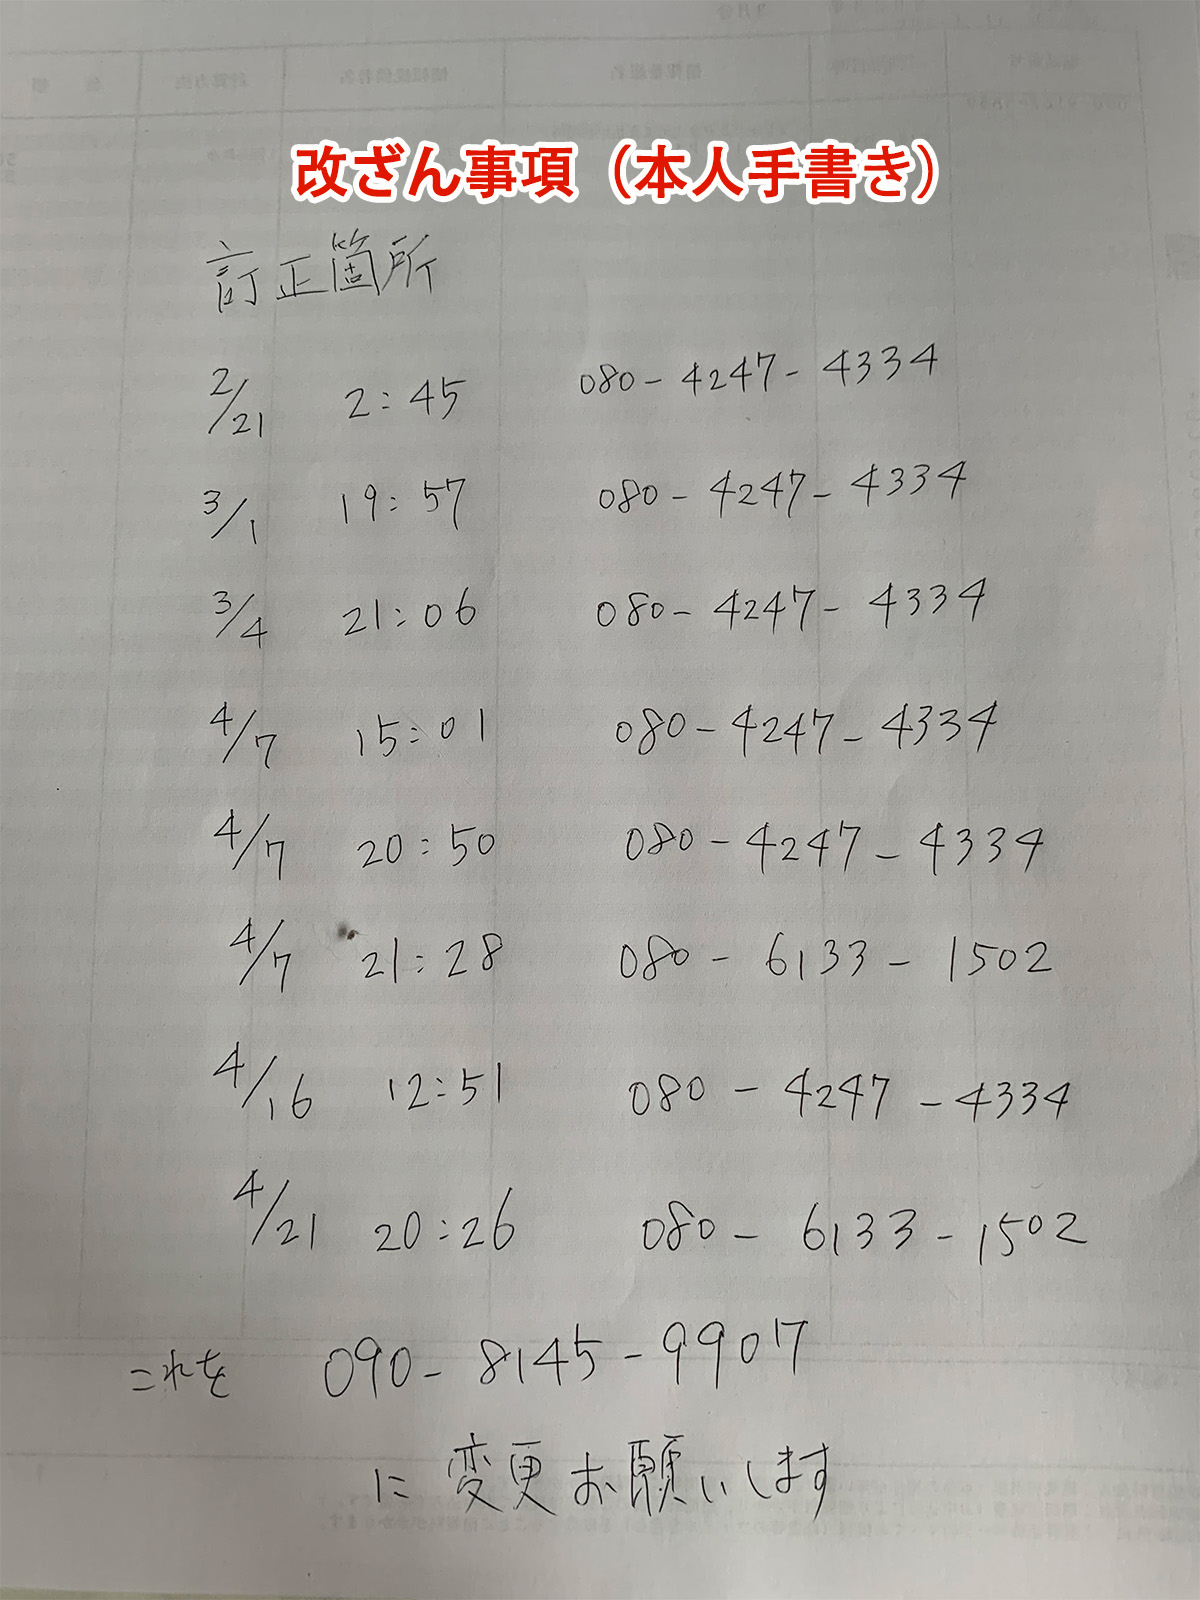 改ざん事項（本人手書き）
訂正箇所
2/21 2:45 080-4247-4334
3/1 19:57 080-4247-4334
3/4 21:06 080-4247-4334
4/7 15:01 080-4247-4334
4/7 20:50 080-4247-4334
4/7 21:28 080-6133-1502
4/16 12:51 080-4247-4334
4/21 20:26 080-6133-1502
これを 090-8145-9907
に変更お願いします